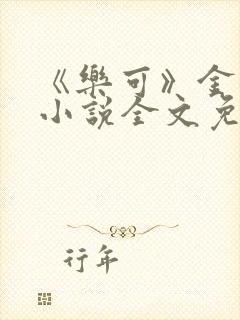 《樂可》金
小說全文免
行年